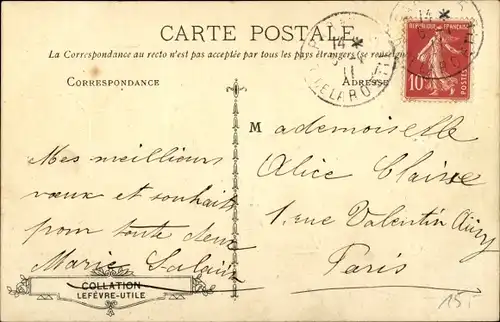 CARTE POSTALE
La Correspondance au recto n'est pas acceptée par tous les pays étrangers (se
CORRESPONDANCE
ADRESSE
RÉPUBLIQUE FRANÇAISE
10
14
11
14
Mademoiselle
Alice Claisse
1, rue Valentin Haüy
Paris
Mes meilleurs
vœux et souhaits
pour toute deux
Marie
COLLATION
LEFÈVRE-UTILE
15.-